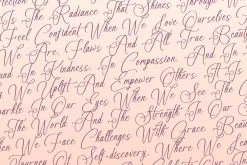 The Radiance That Shines Through
Feel Confident When We Love Ourselves
We Are, Flaws And All True Beauty
Found In Kindness, In Compassion, And
We Uplift And Empower Others. It Is The
Sparkle In Our Eyes When We See The
The World And The Strength In Our
When We Face Challenges With Grace. Beauty
Journey Self-discovery, Where We